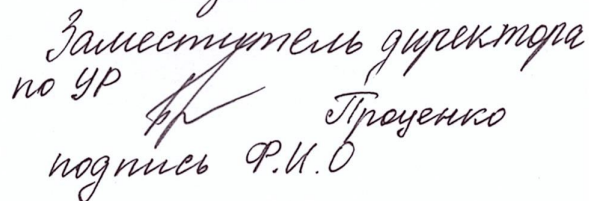 Заместитель директора
по УР Проценко
подпись Ф.И.О